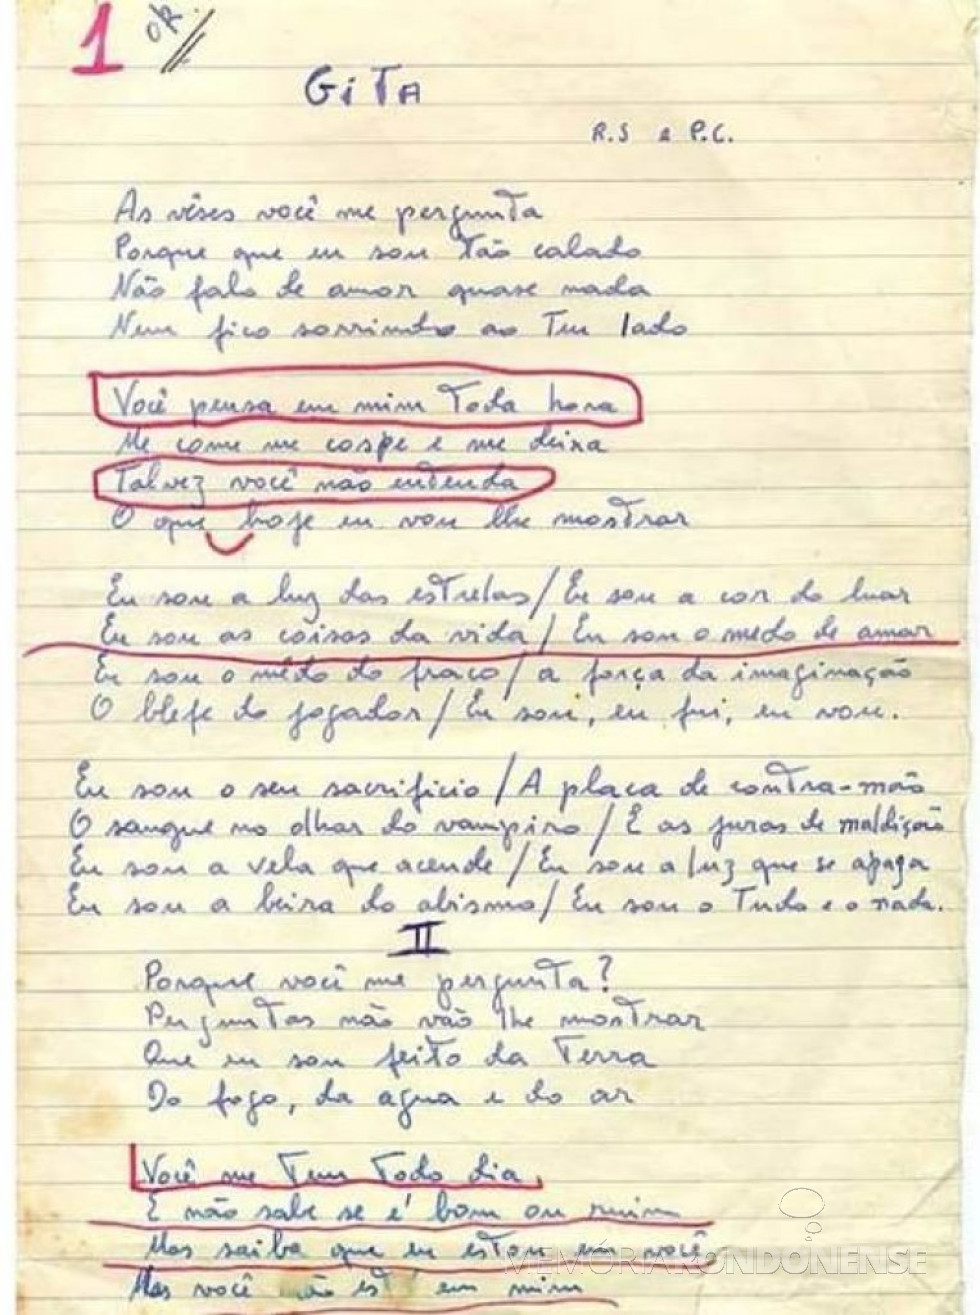 1 OK
GiTA
R.S e P.C.
As vêses você me pergunta
Porque que eu sou tão calado
Não falo de amor quase nada
Nem fico sorrindo ao teu lado
Você pensa em mim toda hora
Me come me cospe e me deixa
Talvez você não entenda
O que hoje eu vou lhe mostrar
Eu sou a luz das estrelas / Eu sou a cor do luar
Eu sou as coisas da vida / Eu sou o medo de amar
Eu sou o mêdo do fraco / a força da imaginação
O blefe do jogador / Eu sou, eu fui, eu vou.
Eu sou o seu sacrificio / A placa de contra-mão
O sangue no olhar do vampiro / E as juras de maldição
Eu sou a vela que acende / Eu sou a luz que se apaga
Eu sou a beira do abismo / Eu sou o Tudo e o nada.
II
Porque você me pergunta?
Perguntas não vão lhe mostrar
Que eu sou feito da Terra
Do fogo, da agua e do ar
Você me tem todo dia,
E não sabe se é bom ou ruim
Mas saiba que eu estou em você
Mas você não est em mim
MEMÓRIA RONDONENSE